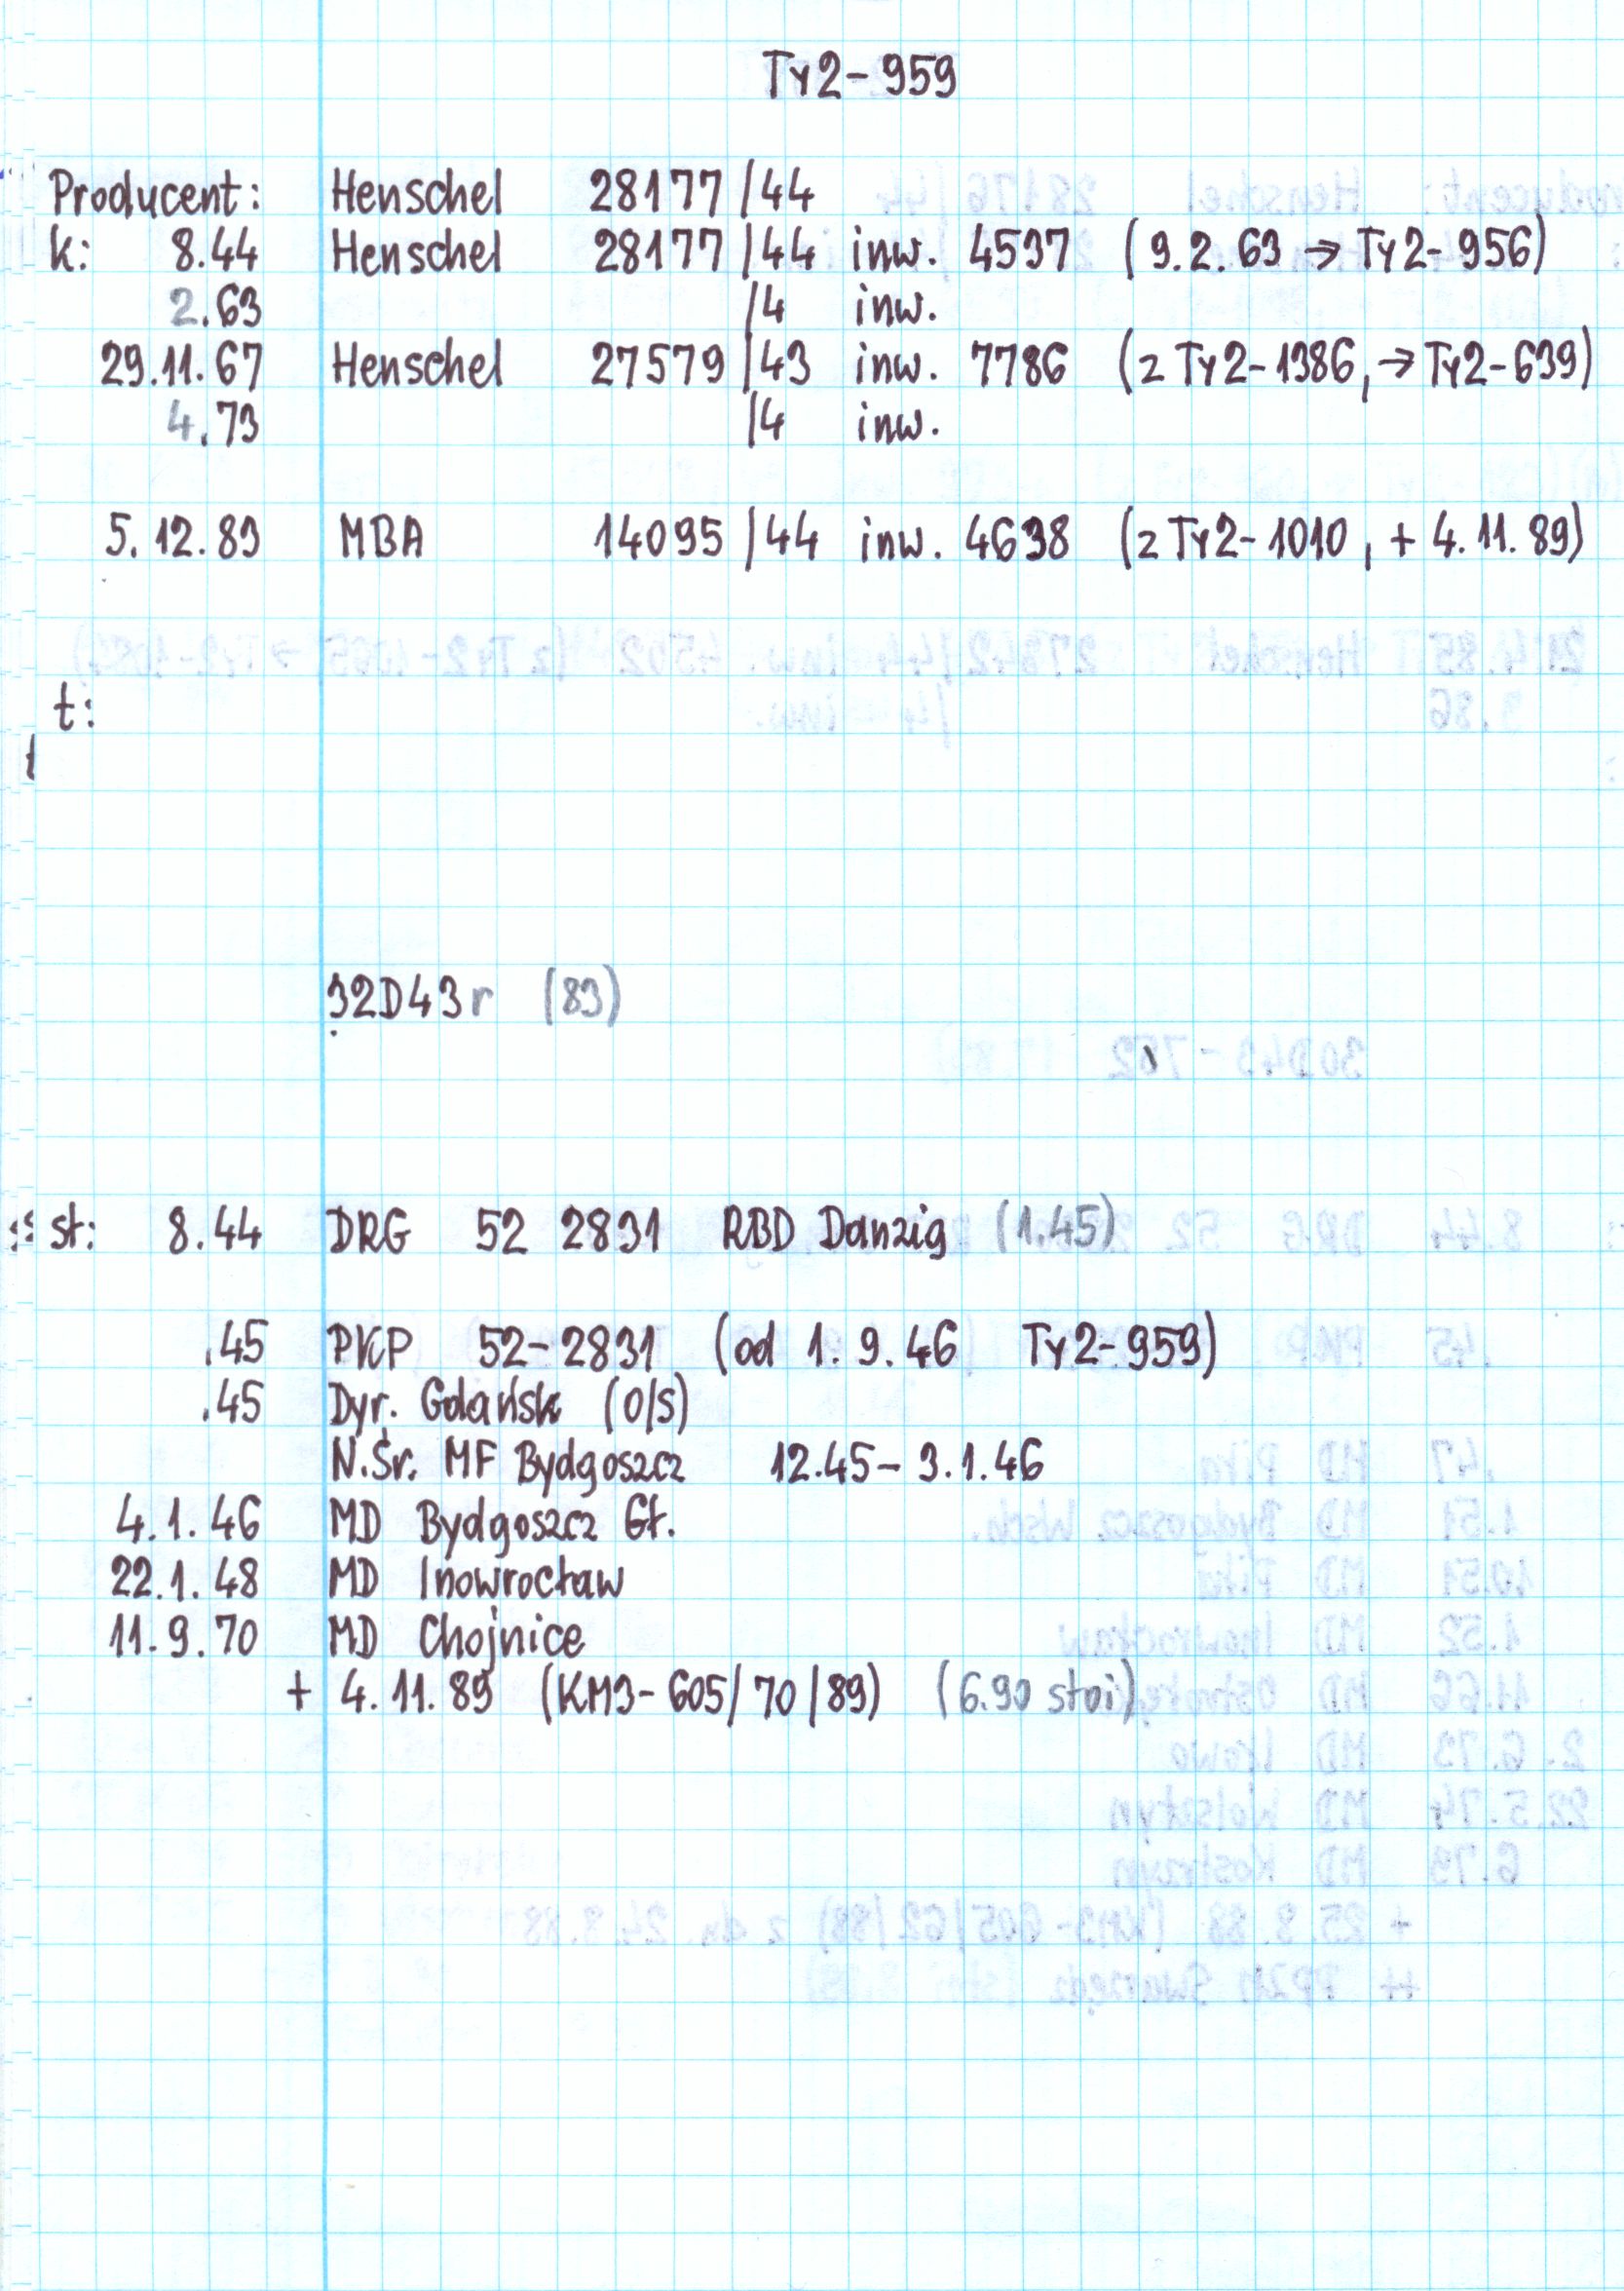 Ty2-959
Producent: Henschel 28177/44
k: 8.44 Henschel 28177/44 inw. 4537 (9.2.63 → Ty2-956)
2.63 /4 inw.
29.11.67 Henschel 27579/43 inw. 7786 (z Ty2-1386, → Ty2-639)
4.73 /4 inw.
5.12.83 MBA 14095/44 inw. 4638 (z Ty2-1010, + 4.11.89)
t:
32D43r (83)
st: 8.44 DRG 52 2831 RBD Danzig (1.45)
.45 PKP 52-2831 (od 1.9.46 Ty2-959)
.45 Dyr. Gdańsk (O/S)
N.Śr. MF Bydgoszcz 12.45-3.1.46
4.1.46 MD Bydgoszcz Gł.
22.1.48 MD Inowrocław
11.9.70 MD Chojnice
+ 4.11.89 (KM3-605/70/89) (6.90 stoi)